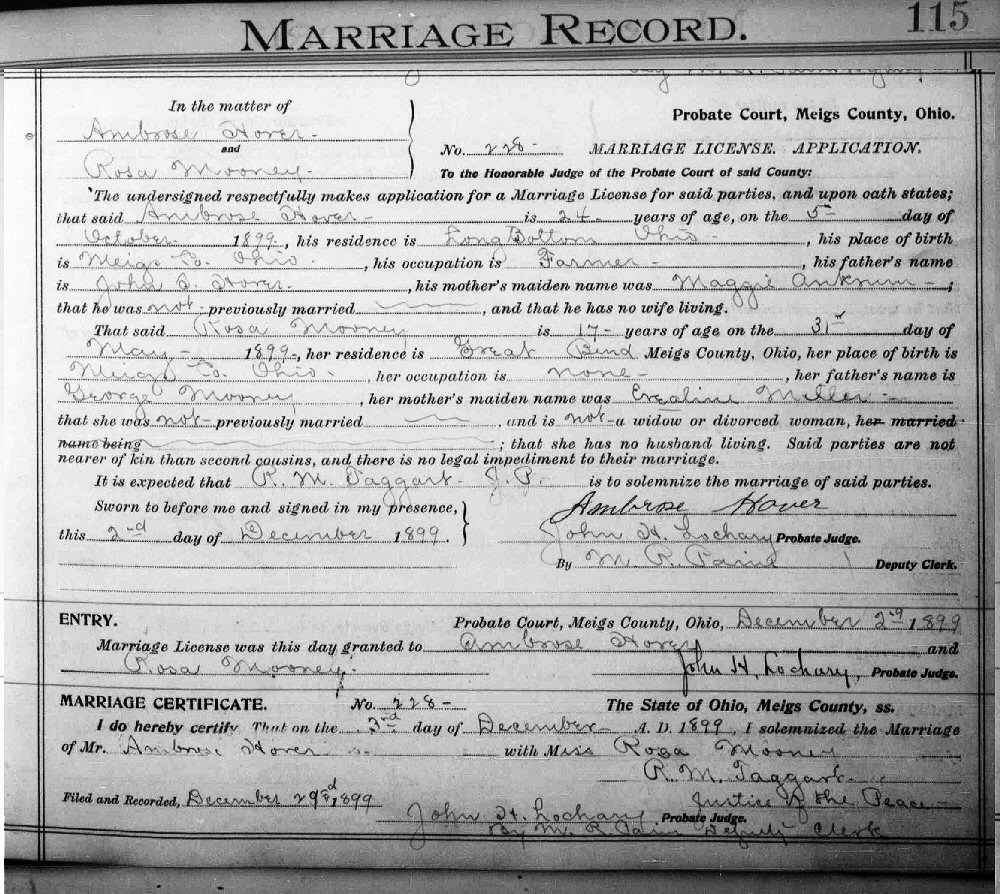 MARRIAGE RECORD. 115
In the matter of
Ambrose Hover
and
Rosa Mooney
Probate Court, Meigs County, Ohio.
No. 228 MARRIAGE LICENSE. APPLICATION.
To the Honorable Judge of the Probate Court of said County:
The undersigned respectfully makes application for a Marriage License for said parties, and upon oath states;
that said Ambrose Hover is 24 years of age, on the 5 day of
October 1899, his residence is Long Bottom Ohio, his place of birth
is Meigs Co. Ohio, his occupation is Farmer, his father's name
is John Hover, his mother's maiden name was Maggie;
that he was not previously married, and that he has no wife living.
That said Rosa Mooney is 17 years of age on the 31st day of
May 1899, her residence is Great Bend Meigs County, Ohio, her place of birth is
Meigs Co. Ohio, her occupation is none, her father's name is
George Mooney, her mother's maiden name was Miller
that she was not previously married, and is not a widow or divorced woman, her married
name being; that she has no husband living. Said parties are not
nearer of kin than second cousins, and there is no legal impediment to their marriage.
It is expected that R. M. Taggart J. P. is to solemnize the marriage of said parties.
Sworn to before me and signed in my presence,
this 2nd day of December 1899.
Ambrose Hover
John H. Lochary Probate Judge.
By M. R. Deputy Clerk.
ENTRY. Probate Court, Meigs County, Ohio, December 2nd 1899
Marriage License was this day granted to Ambrose Hover and
Rosa Mooney. John H. Lochary, Probate Judge.
MARRIAGE CERTIFICATE. No. 228 The State of Ohio, Meigs County, ss.
I do hereby certify That on the 3rd day of December A. D. 1899, I solemnized the Marriage
of Mr. Ambrose Hover with Miss Rosa Mooney
R. M. Taggart
Filed and Recorded, December 1899 Justice of the Peace
John H. Lochary Probate Judge.
By M. R. Deputy Clerk